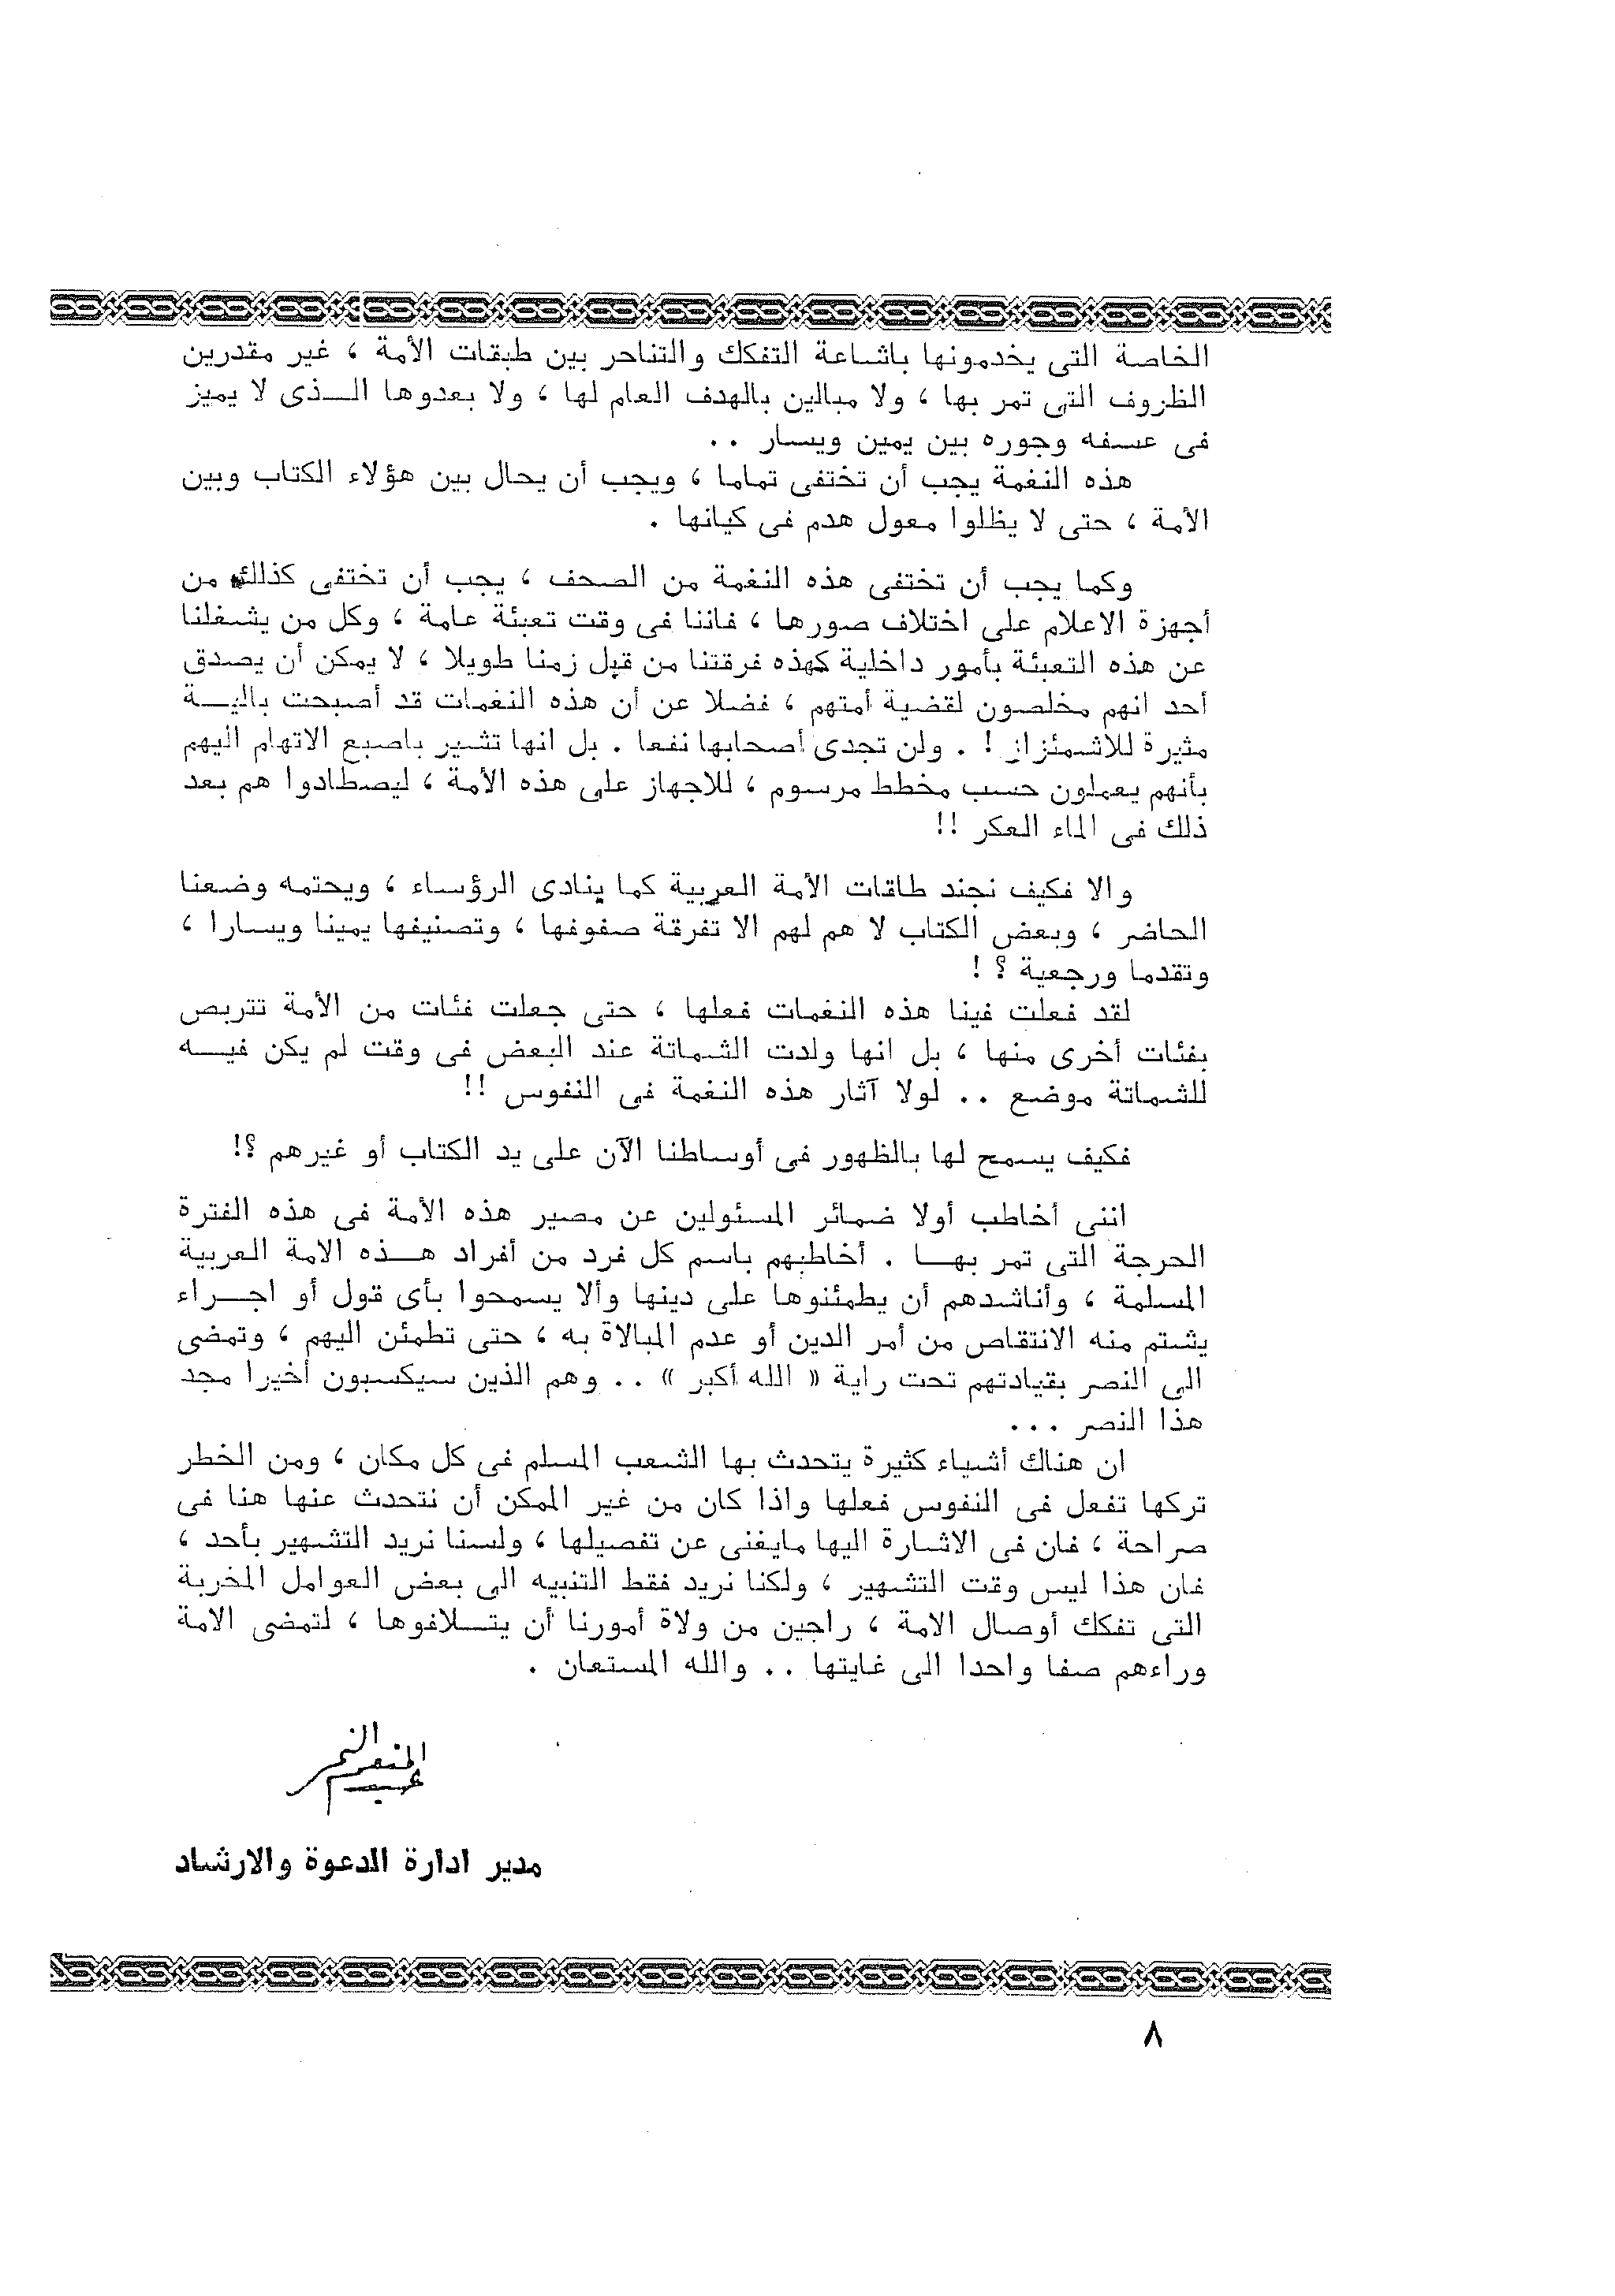 الخاصة التى يخدمونها باشاعة التفكك والتناحر بين طبقات الأمة ، غير مقدرين
الظروف التى تمر بها ، ولا مبالين بالهدف العام لها ، ولا بعدوها الـذى لا يميز
فى عسفه وجوره بين يمين ويسار ..
هذه النغمة يجب أن تختفى تماما ، ويجب أن يحال بين هؤلاء الكتاب وبين
الأمة ، حتى لا يظلوا معول هدم فى كيانها .
وكما يجب أن تختفى هذه النغمة من الصحف ، يجب أن تختفى كذلك من
أجهزة الاعلام على اختلاف صورها ، فاننا فى وقت تعبئة عامة ، وكل من يشغلنا
عن هذه التعبئة بأمور داخلية كهذه فرقتنا من قبل زمنا طويلا ، لا يمكن أن يصدق
أحد انهم مخلصون لقضية أمتهم ، فضلا عن أن هذه النغمات قد أصبحت باليـة
مثيرة للاشمئزاز ! . ولن تجدى أصحابها نفعا . بل انها تشير باصبع الاتهام اليهم
بأنهم يعملون حسب مخطط مرسوم ، للاجهاز على هذه الأمة ، ليصطادوا هم بعد
ذلك فى الماء العكر !!
والا فكيف نجند طاقات الأمة العربية كما ينادى الرؤساء ، ويحتمه وضعنا
الحاضر ، وبعض الكتاب لا هم لهم الا تفرقة صفوفها ، وتصنيفها يمينا ويسارا ،
وتقدما ورجعية ؟ !
لقد فعلت فينا هذه النغمات فعلها ، حتى جعلت فئات من الأمة تتربص
بفئات أخرى منها ، بل انها ولدت الشماتة عند البعض فى وقت لم يكن فيـه
للشماتة موضع .. لولا آثار هذه النغمة فى النفوس !!
فكيف يسمح لها بالظهور فى أوساطنا الآن على يد الكتاب أو غيرهم ؟!
اننى أخاطب أولا ضمائر المسئولين عن مصير هذه الأمة فى هذه الفترة
الحرجة التى تمر بهـا . أخاطبهم باسم كل فرد من أفراد هـذه الامة العربية
المسلمة ، وأناشدهم أن يطمئنوها على دينها وألا يسمحوا بأى قول أو اجـراء
يشتم منه الانتقاص من أمر الدين أو عدم المبالاة به ، حتى تطمئن اليهم ، وتمضى
الى النصر بقيادتهم تحت راية « الله أكبر » .. وهم الذين سيكسبون أخيرا مجد
هذا النصر ...
ان هناك أشياء كثيرة يتحدث بها الشعب المسلم فى كل مكان ، ومن الخطر
تركها تفعل فى النفوس فعلها واذا كان من غير الممكن أن نتحدث عنها هنا فى
صراحة ، فان فى الاشارة اليها مايغنى عن تفصيلها ، ولسنا نريد التشهير بأحد ،
فان هذا ليس وقت التشهير ، ولكنا نريد فقط التنبيه الى بعض العوامل المخربة
التى تفكك أوصال الامة ، راجين من ولاة أمورنا أن يتـلافوها ، لتمضى الامة
وراءهم صفا واحدا الى غايتها .. والله المستعان .
عبد المنعم النمر
مدير ادارة الدعوة والارشاد
٨